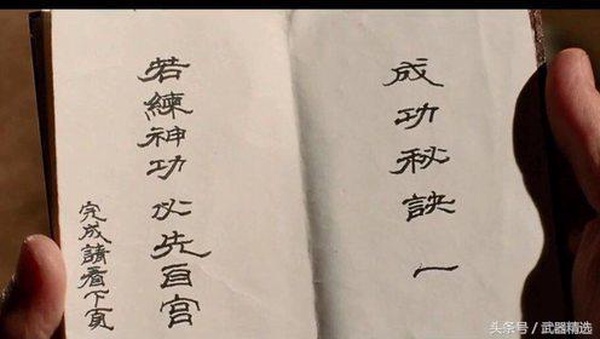 成功秘訣 一
若練神功 必先自宮
完成請看下頁
头条号 / 武器精选